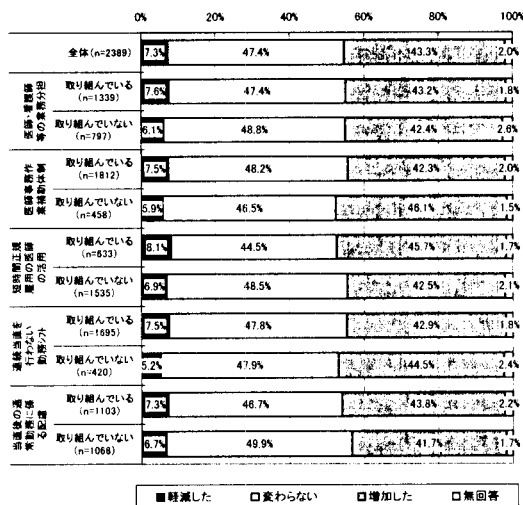 0% 20% 40% 60% 80% 100%
全体(n=2389) 7.3% 47.4% 43.3% 2.0%
医師・看護師等の業務分担
取り組んでいる (n=1339) 7.6% 47.4% 43.2% 1.8%
取り組んでいない (n=797) 6.1% 48.8% 42.4% 2.6%
医師事務作業補助体制
取り組んでいる (n=1812) 7.5% 48.2% 42.3% 2.0%
取り組んでいない (n=458) 5.9% 46.5% 46.1% 1.5%
短時間正規雇用の医師の活用
取り組んでいる (n=633) 8.1% 44.5% 45.7% 1.7%
取り組んでいない (n=1535) 6.9% 48.5% 42.5% 2.1%
連続当直を行わない勤務シフト
取り組んでいる (n=1695) 7.5% 47.8% 42.9% 1.8%
取り組んでいない (n=420) 5.2% 47.9% 44.5% 2.4%
当直後の通常勤務に係る配慮
取り組んでいる (n=1103) 7.3% 46.7% 43.8% 2.2%
取り組んでいない (n=1068) 6.7% 49.9% 41.7% 1.7%
軽減した 変わらない 増加した 無回答